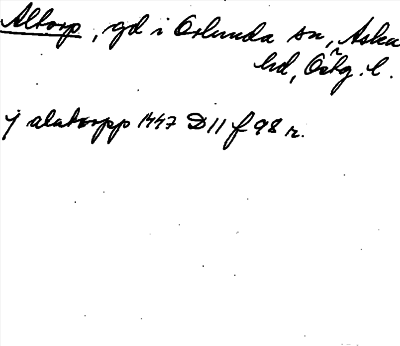 Altorp, gd i Orlunda sn, Aska
hd, Östg. l.
j alatorpp 1447 D11 f 98 r.